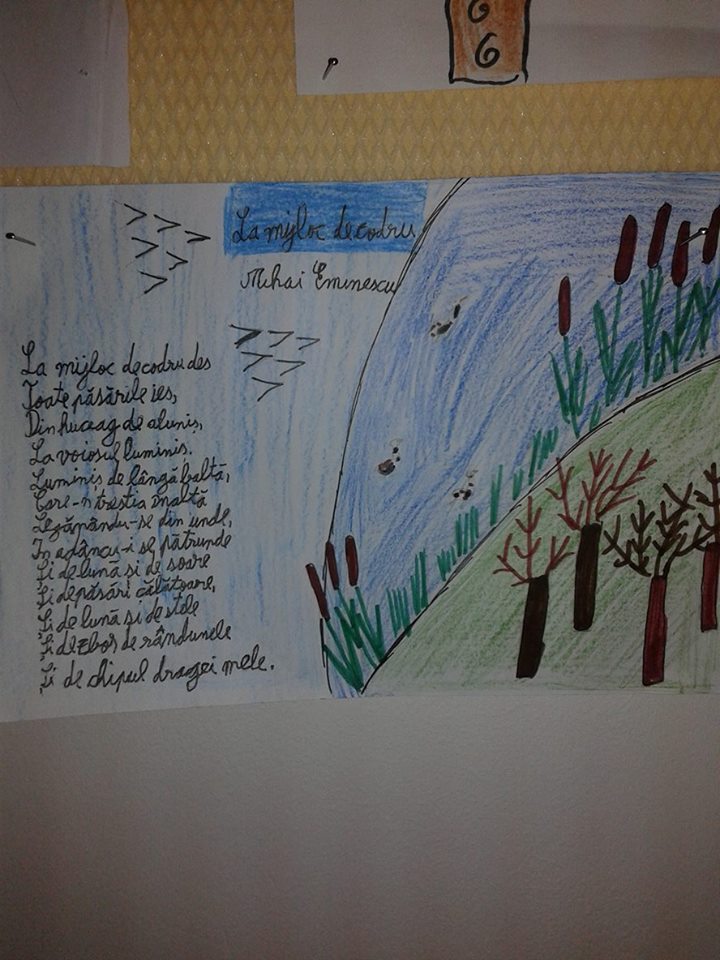 6
6
La mijloc de codru
Mihai Eminescu
La mijloc de codru des
Toate păsările ies,
Din huceag de aluniș,
La voiosul luminiș.
Luminiș de lângă baltă,
Care-n trestia înaltă
Legănându-se din unde,
În adâncu-i se pătrunde
Și de lună și de soare
Și de păsări călătoare,
Și de lună și de stele
Și de zbor de rândunele
Și de chipul dragei mele.